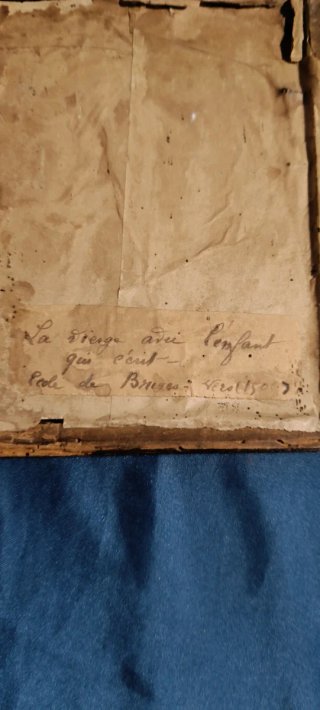 La vierge avec l'enfant
qui écrit –
Ecole de Bruges – vers 1500